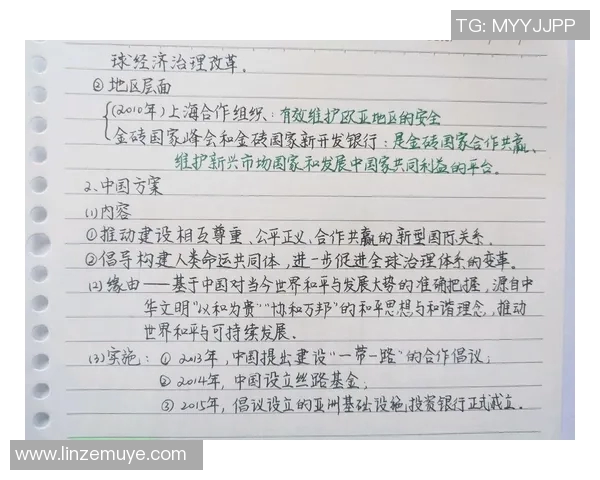 TG: MYYJJPP
球经济治理改革。
②地区层面
(2010年)上海合作组织：有效维护欧亚地区的安全
金砖国家峰会和金砖国家新开发银行：是金砖国家合作共赢、
维护新兴市场国家和发展中国家共同利益的平台。
2、中国方案
(1)内容
①推动建设相互尊重、公平正义、合作共赢的新型国际关系。
②倡导构建人类命运共同体，进一步促进全球治理体系的变革。
(2)缘由——基于中国对当今世界和平与发展大势的准确把握，源自中
华文明"以和为贵""协和万邦"的和平思想与和谐理念，推动
世界和平与可持续发展。
(3)实施：①2013年，中国提出建设"一带一路"的合作倡议；
②2014年，中国设立丝路基金；
③2015年，倡议设立的亚洲基础设施投资银行正式成立。
www.linzemuye.com